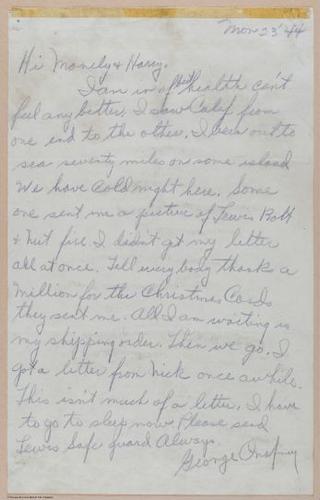 Mon 23 '44
Hi Monely & Harry.
I am in of best health can't
feel any better. I saw Calif from
one end to the other. I been out to
sea seventy miles on some island
We have cold night here. Some
one sent me a picture of Lewis Bolt
& Nut fire. I didn't get my letter
all at once. Tell every body thanks a
million for the Christmas Cards
they sent me. All I am waiting is
my shipping order. Then we go. I
got a letter from Nick once awhile.
This isn't much of a letter. I have
to go to sleep now Please send
Lewis Safe guard Always.
George